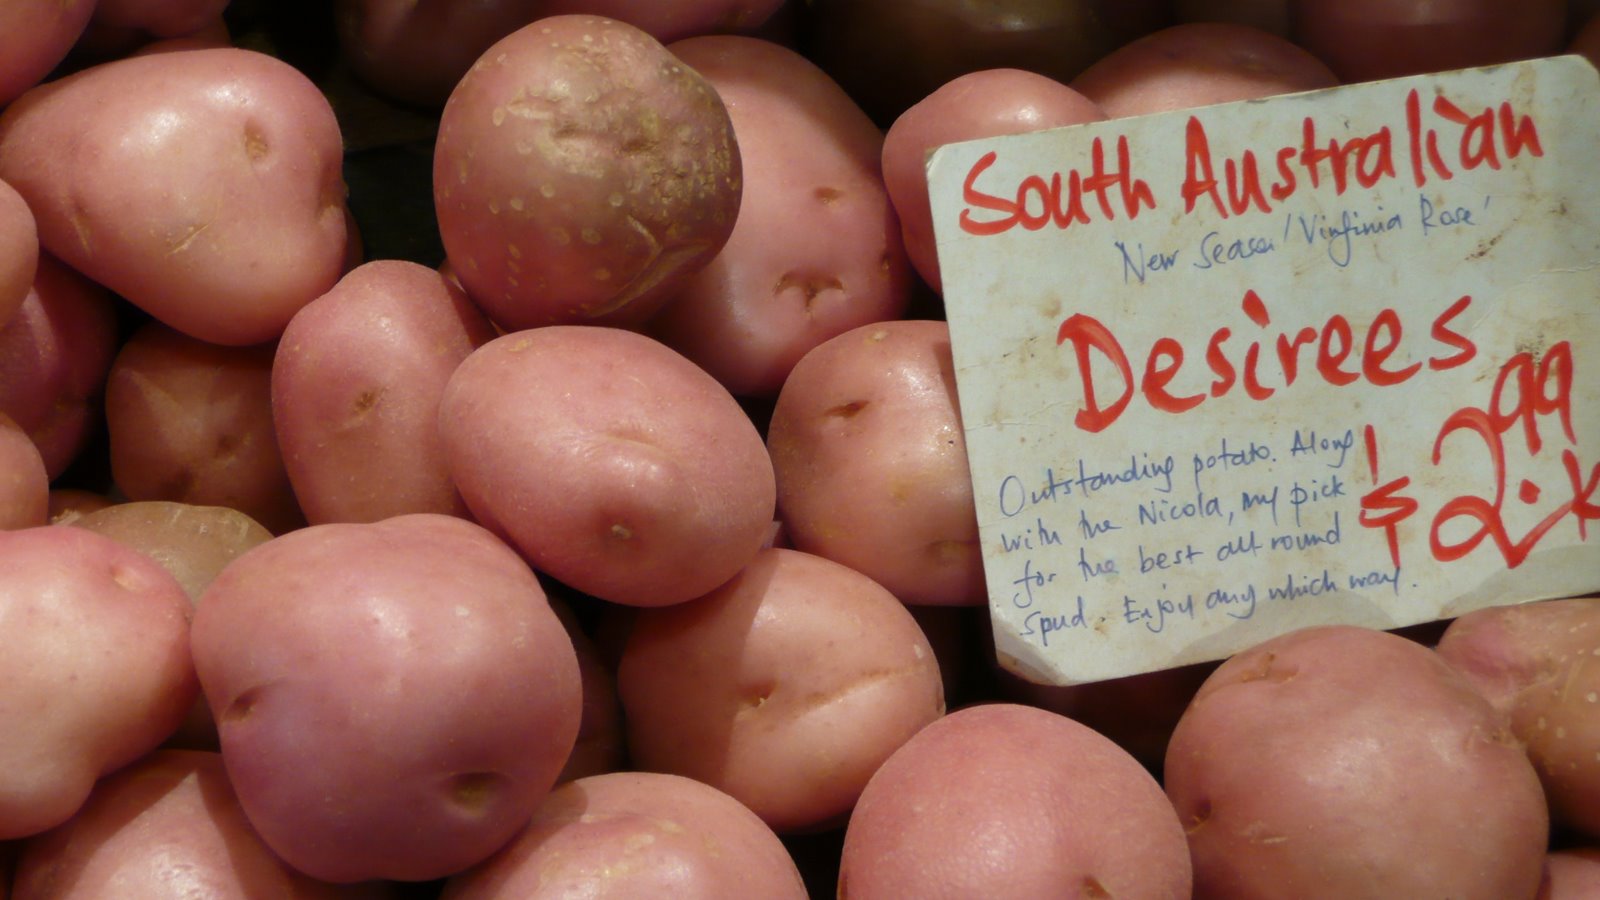 South Australian
New Season 'Virginia Rose'
Desirees
$2.99 K
Outstanding potato. Along
with the Nicola, my pick
for the best all round
spud. Enjoy any which way.